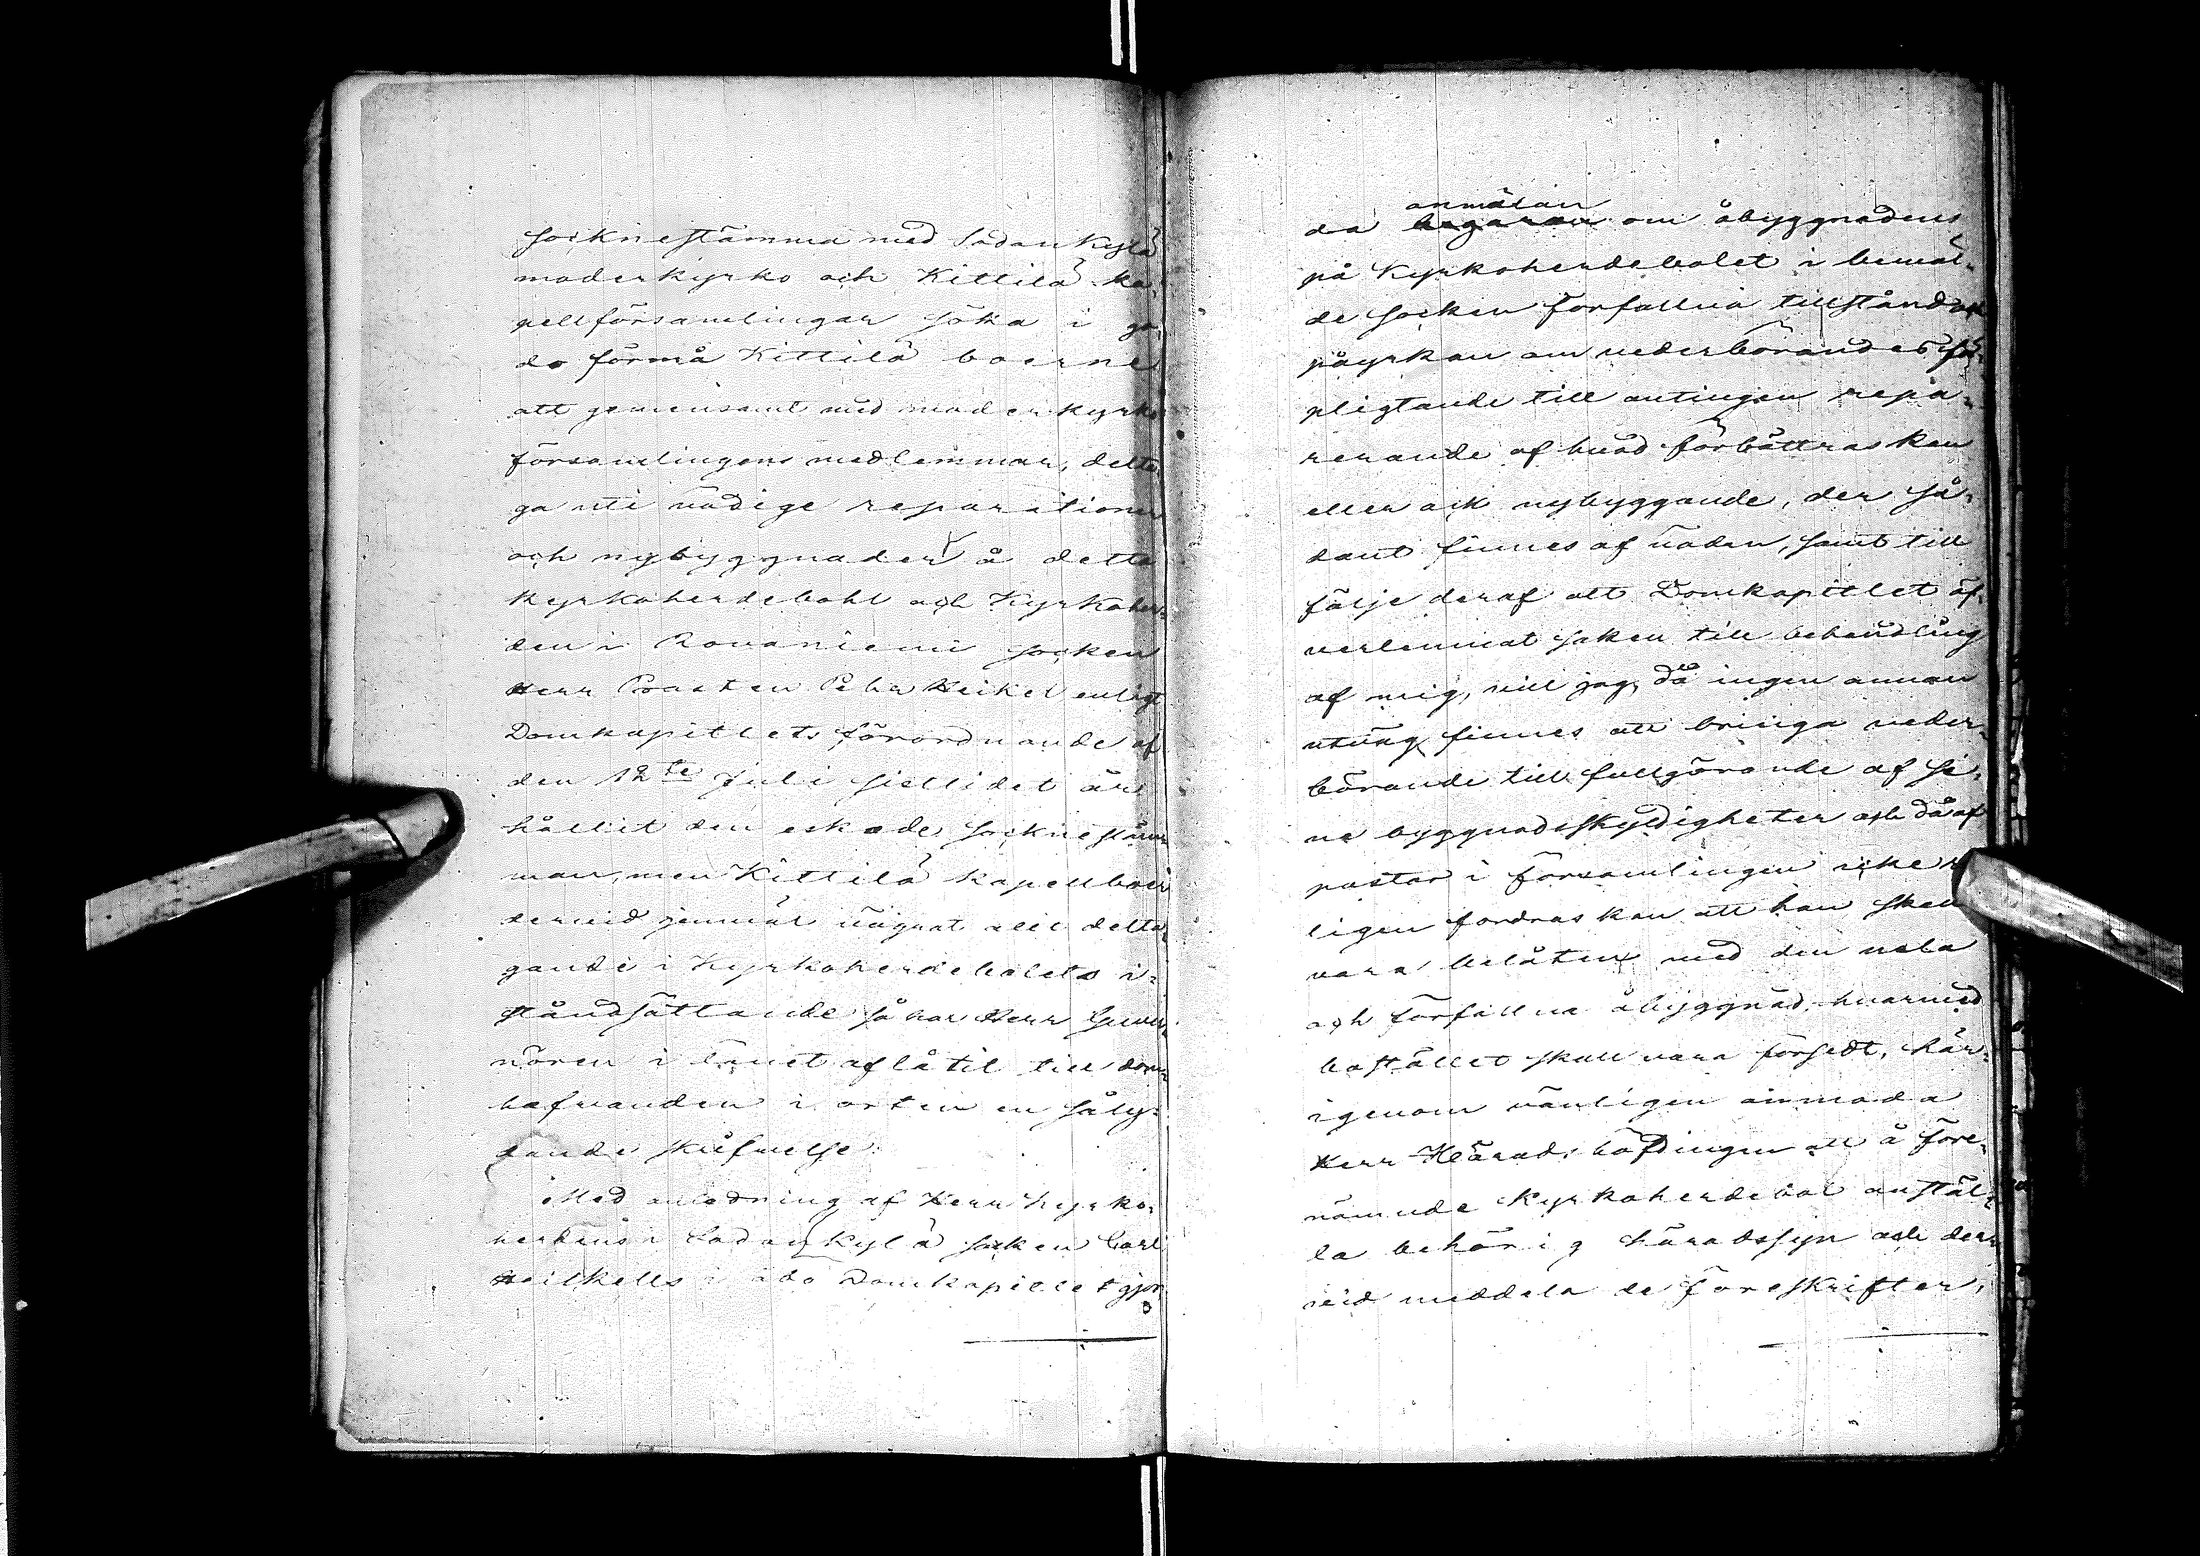 Socknestämma med Sodankylä
moderkyrko och Kittilä ka-
pellförsamlingar söka i go-
do förmå Kittilä boerne
att gemensamt med moderkyrko
församlingens medlemmar, delta-
ga uti nödige reparationer
och nybyggnader å detta
Kyrkoherdebohl och Kyrkoher-
den i Rovaniemi socken
Herr Prosten Pehr Heikel enligt
Domkapitlets förordnande af
den 12te Juli sistlidet år
hållit den eskade Socknestäm-
man, men Kittilä kapellboer
dervid jemväl vägrat allt delta-
gande i Kyrkoherdebolets i-
ståndsättande så har Herr Guver-
nören i länet aflåtit till dom-
hafvanden i orten en såly-
dande skrifvelse:
Med anledning af Herr Kyrko-
herdens i Sodankylä socken Carl
Heikells i Åbo Domkapitlet gjor-
da anmälan begäran om åbyggnadens
på Kyrkoherdebolet i bemäl-
de socken förfallna tillstånd och
påyrkan om vederbörandes för-
pligtande till antingen repa-
rerande af hvad förbättras kan
eller ock nybyggande, der så-
dant finnes af nöden, samt till
följe deraf att Domkapitlet öf-
verlemnat saken till behandling
af mig, vill jag, då ingen annan
utväg finnes att bringa veder-
börande till fullgörande af si-
na byggnadsskyldigheter och då af
pastor i församlingen icke
ligen fordras kan att han skall
vara belåten med den usla
och förfallna åbyggnad, hvarmed
bostället skall vara försedt, här-
igenom vänligen anmoda
Herr Häradshöfdingen att å före-
nämnde Kyrkoherdebol anstäl-
la behörig häradssyn och der-
vid meddela de föreskrifter,